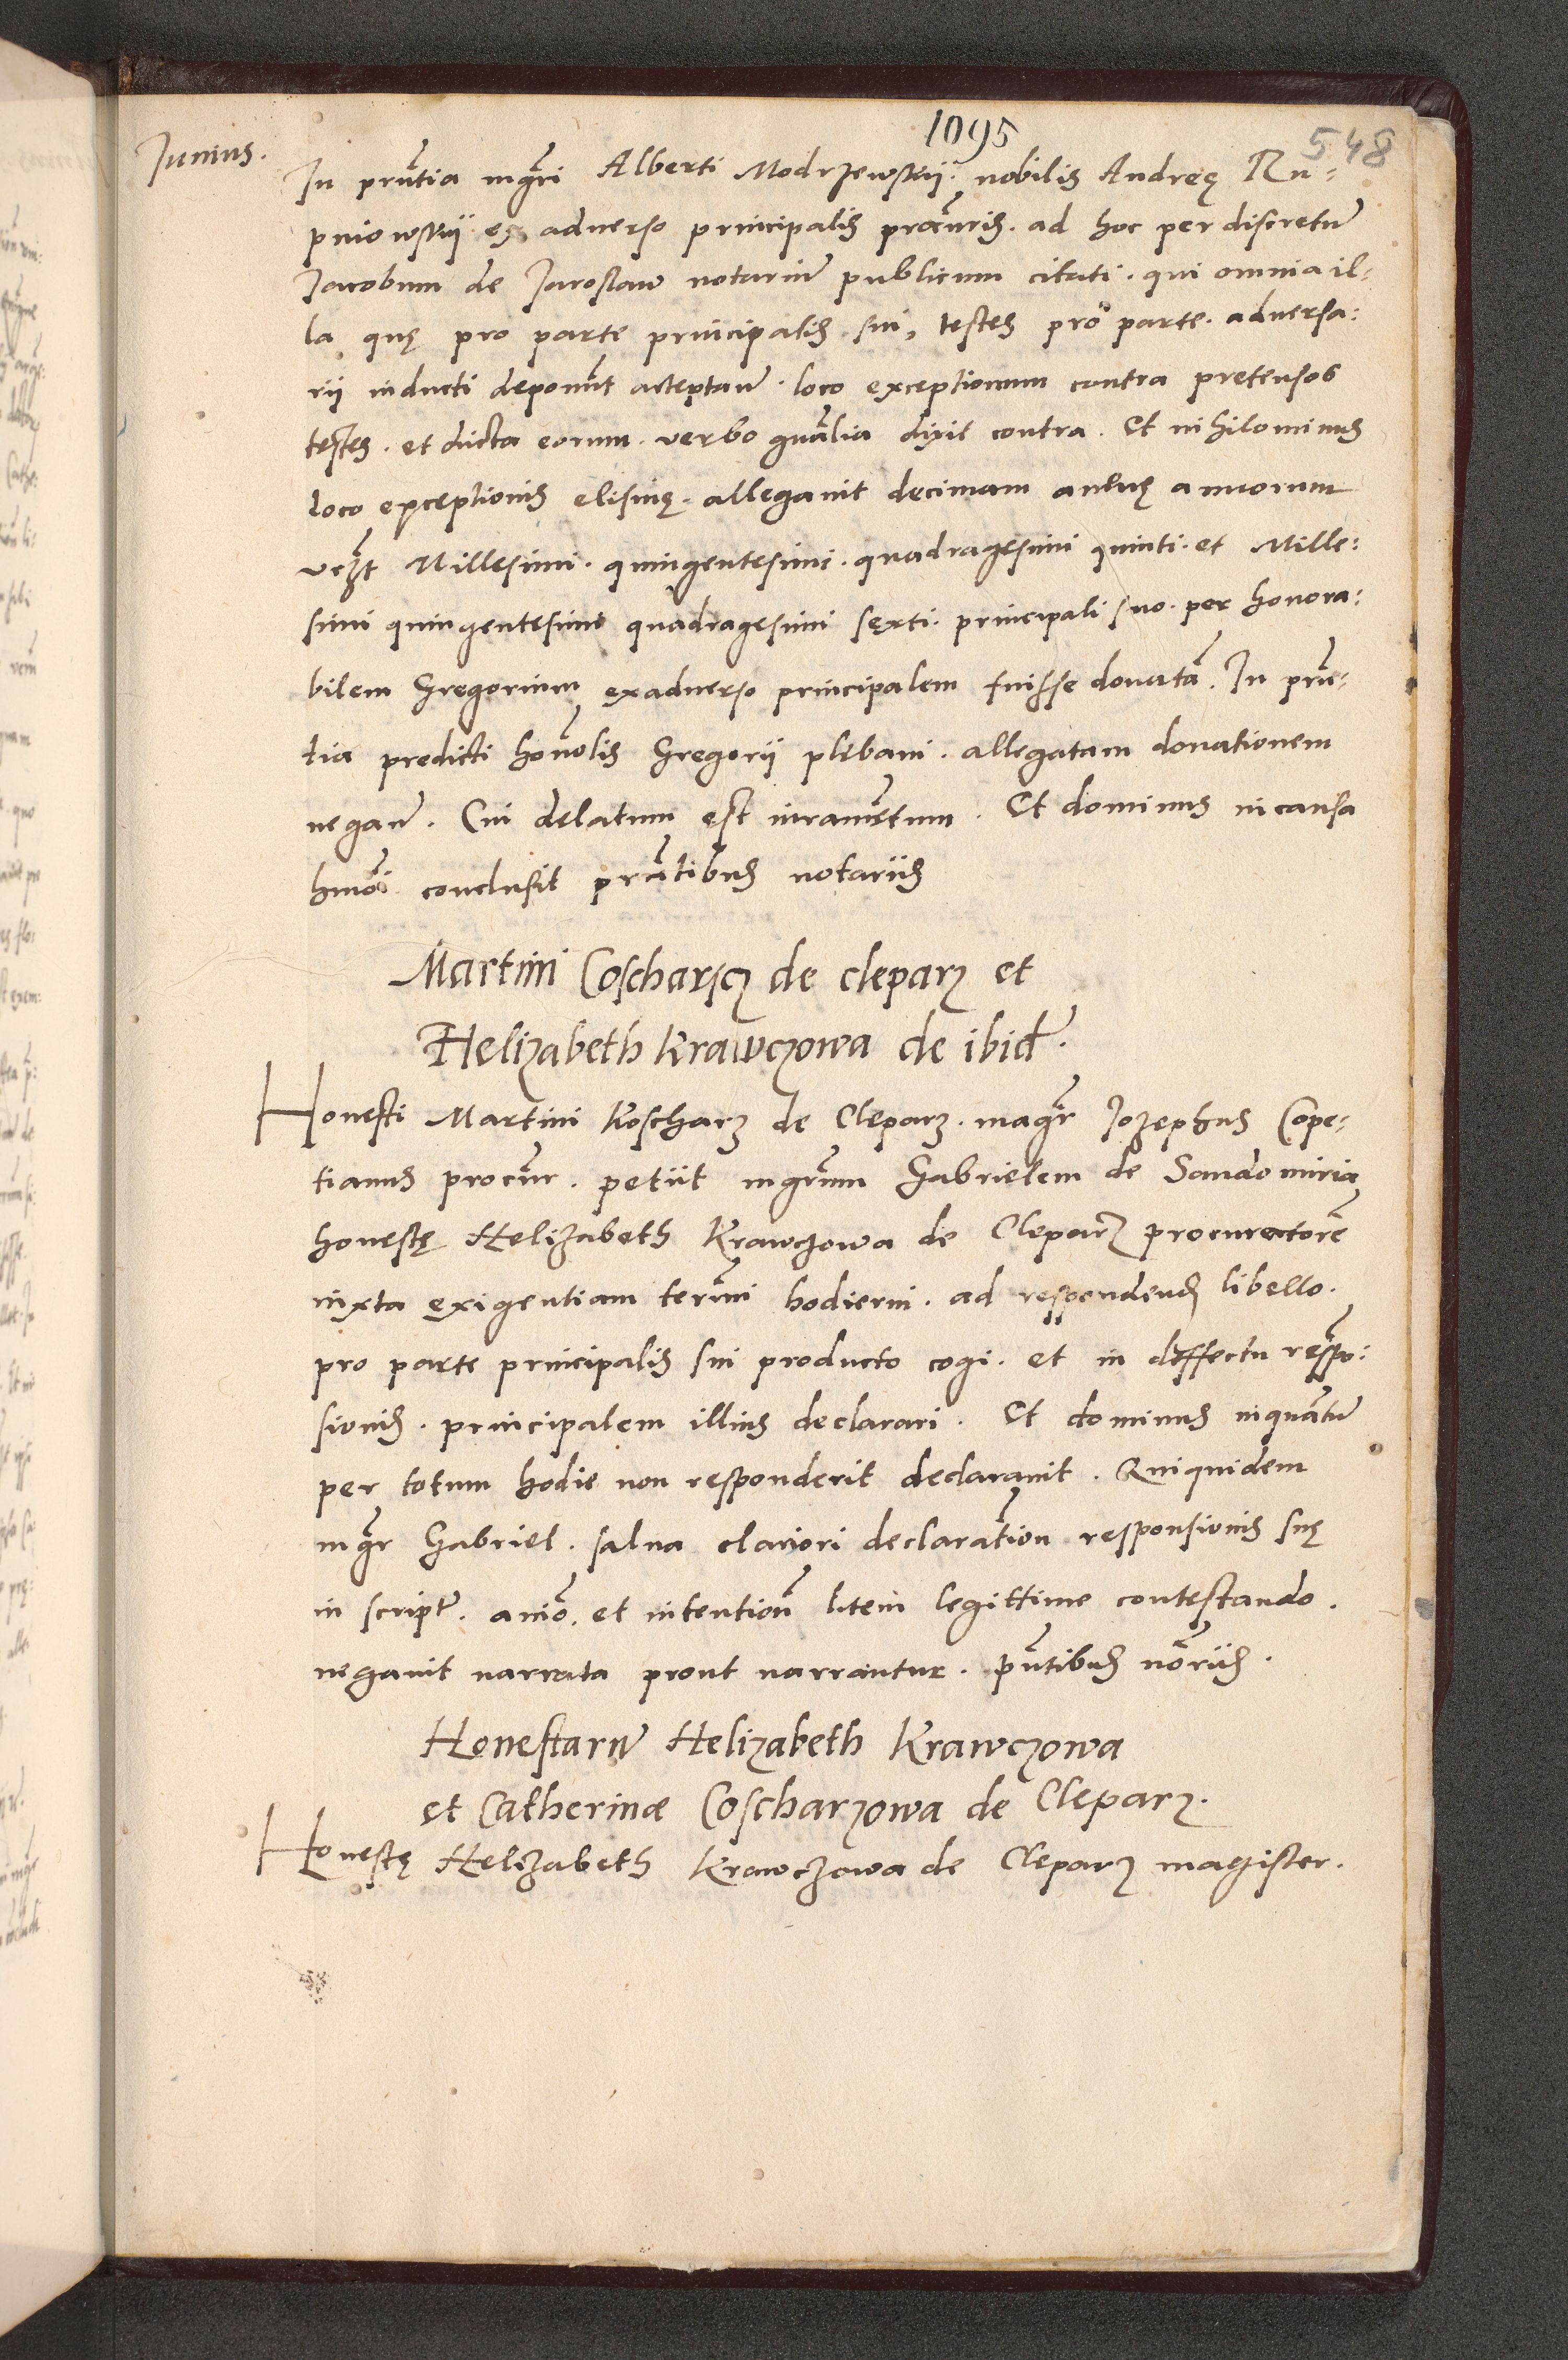 1095
548
Junius.
In prn̄tia mgr̄i Alberti Modrzewskij. nobilis Andreę Ru-
pniowskij ex adverso principalis procūris. ad hoc per discretū
Jacobum de Jaroslaw notariū publicum citati. qui omnia il-
la quę pro parte principalis sui, testes pro parte. adversa:
rij inducti deponūt acceptavē. loco exceptionum contra pretensos
testes. et dicta eorum. verbo gnālia dixit contra. Et nihilominus
loco exceptionis elisivę. allegavit decimam annorum
vczt Millesimi. quingentesimi. quadragesimi quinti. et Mille:
simi quingentesimi quadragesimi sexti. principali suo. per honora:
bilem Gregorium exadverso principalem fuisse donatā. In prn̄-
tia predicti honōlis Gregorij plebani. allegatam donationem
negavē. Cui delatum est iuramētum. Et dominus in causa
hmōi conclusit prn̄tibus notarijs
Martini Coscharscz de cleparz et
Helizabeth Krawczowa de ibid̄.
Honesti Martini Koscharz de Cleparz. magr̄ Jozephus Cope-
tianus procūr. petijt mgrūm Gabrielem de Sandomiria
honestę Helizabeth Krawczowa de Cleparz procuratorē
iuxta exigentiam termīni hodierni. ad respondendū libello.
pro parte principalis sui producto cogi. et in deffectu respō:
sionis. principalem illius declarari. Et dominus inquātū
per totum hodie non responderit declaravit. Quiquidem
mgr̄ Gabriel. salva clariori declaratīon responsionis suę
in script̄. aniō. et intentioñ litem legittime contestando.
negavit narrata prout narrantur. pn̄tibus nōrijs.
Honestarū Helizabeth Krawczowa
et Catherinæ Coscharzowa de Cleparz.
Honestę Helizabeth Krawczowa de Cleparz magister.